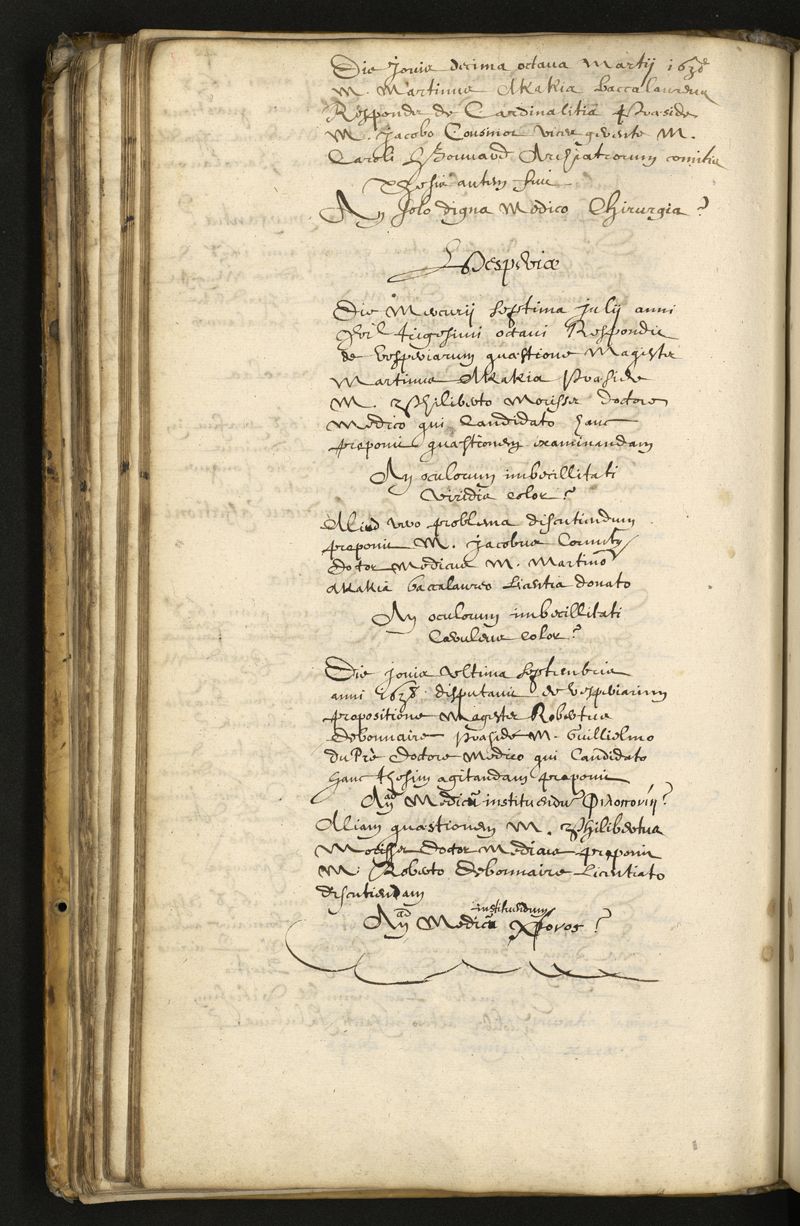 Die Jovis decima octava Martij 1638
M. Martinus Akakia baccalaureus
Respondit de Cardinalitia Praeside
M. Jacobo Cousinot vices gerente M.
Caroli Bouvard Archiatrorum comitis
Thesis autem fuit
An solo digna Medico Chirurgia?
Vesperiae
Die Mercurij septima Julij anni
trigesimi octavi Respondit
de vesperiarum quaestione Magister
Martinus Akakia Praeside
M. Philiberto Morisset doctore
Medico qui Candidato hanc
proponit quaestionem examinandam
An oculorum imbecillitati
viridis color?
Aliud vero problema discutiendum
proponit M. Jacobus
doctor Medicus M. Martino
Akakia baccalaureo Licentia donato
An oculorum imbecillitati
Caeruleus color?
Die Jovis ultima Septembris
anni 1638 disputavit de vesperiarum
propositione Magister Robertus
Debonnaire Praeside M. Guillielmo
du Prè doctore Medico qui Candidato
hanc thesim agitandam proponit
An ad Medicū instituendum ?
Aliam quaestionem M. Philibertus
Morisset doctor Medicus proponit
M. Roberto Debonnaire Licentiato
discutiendam
An ad Medicū instituendum χρόνος?